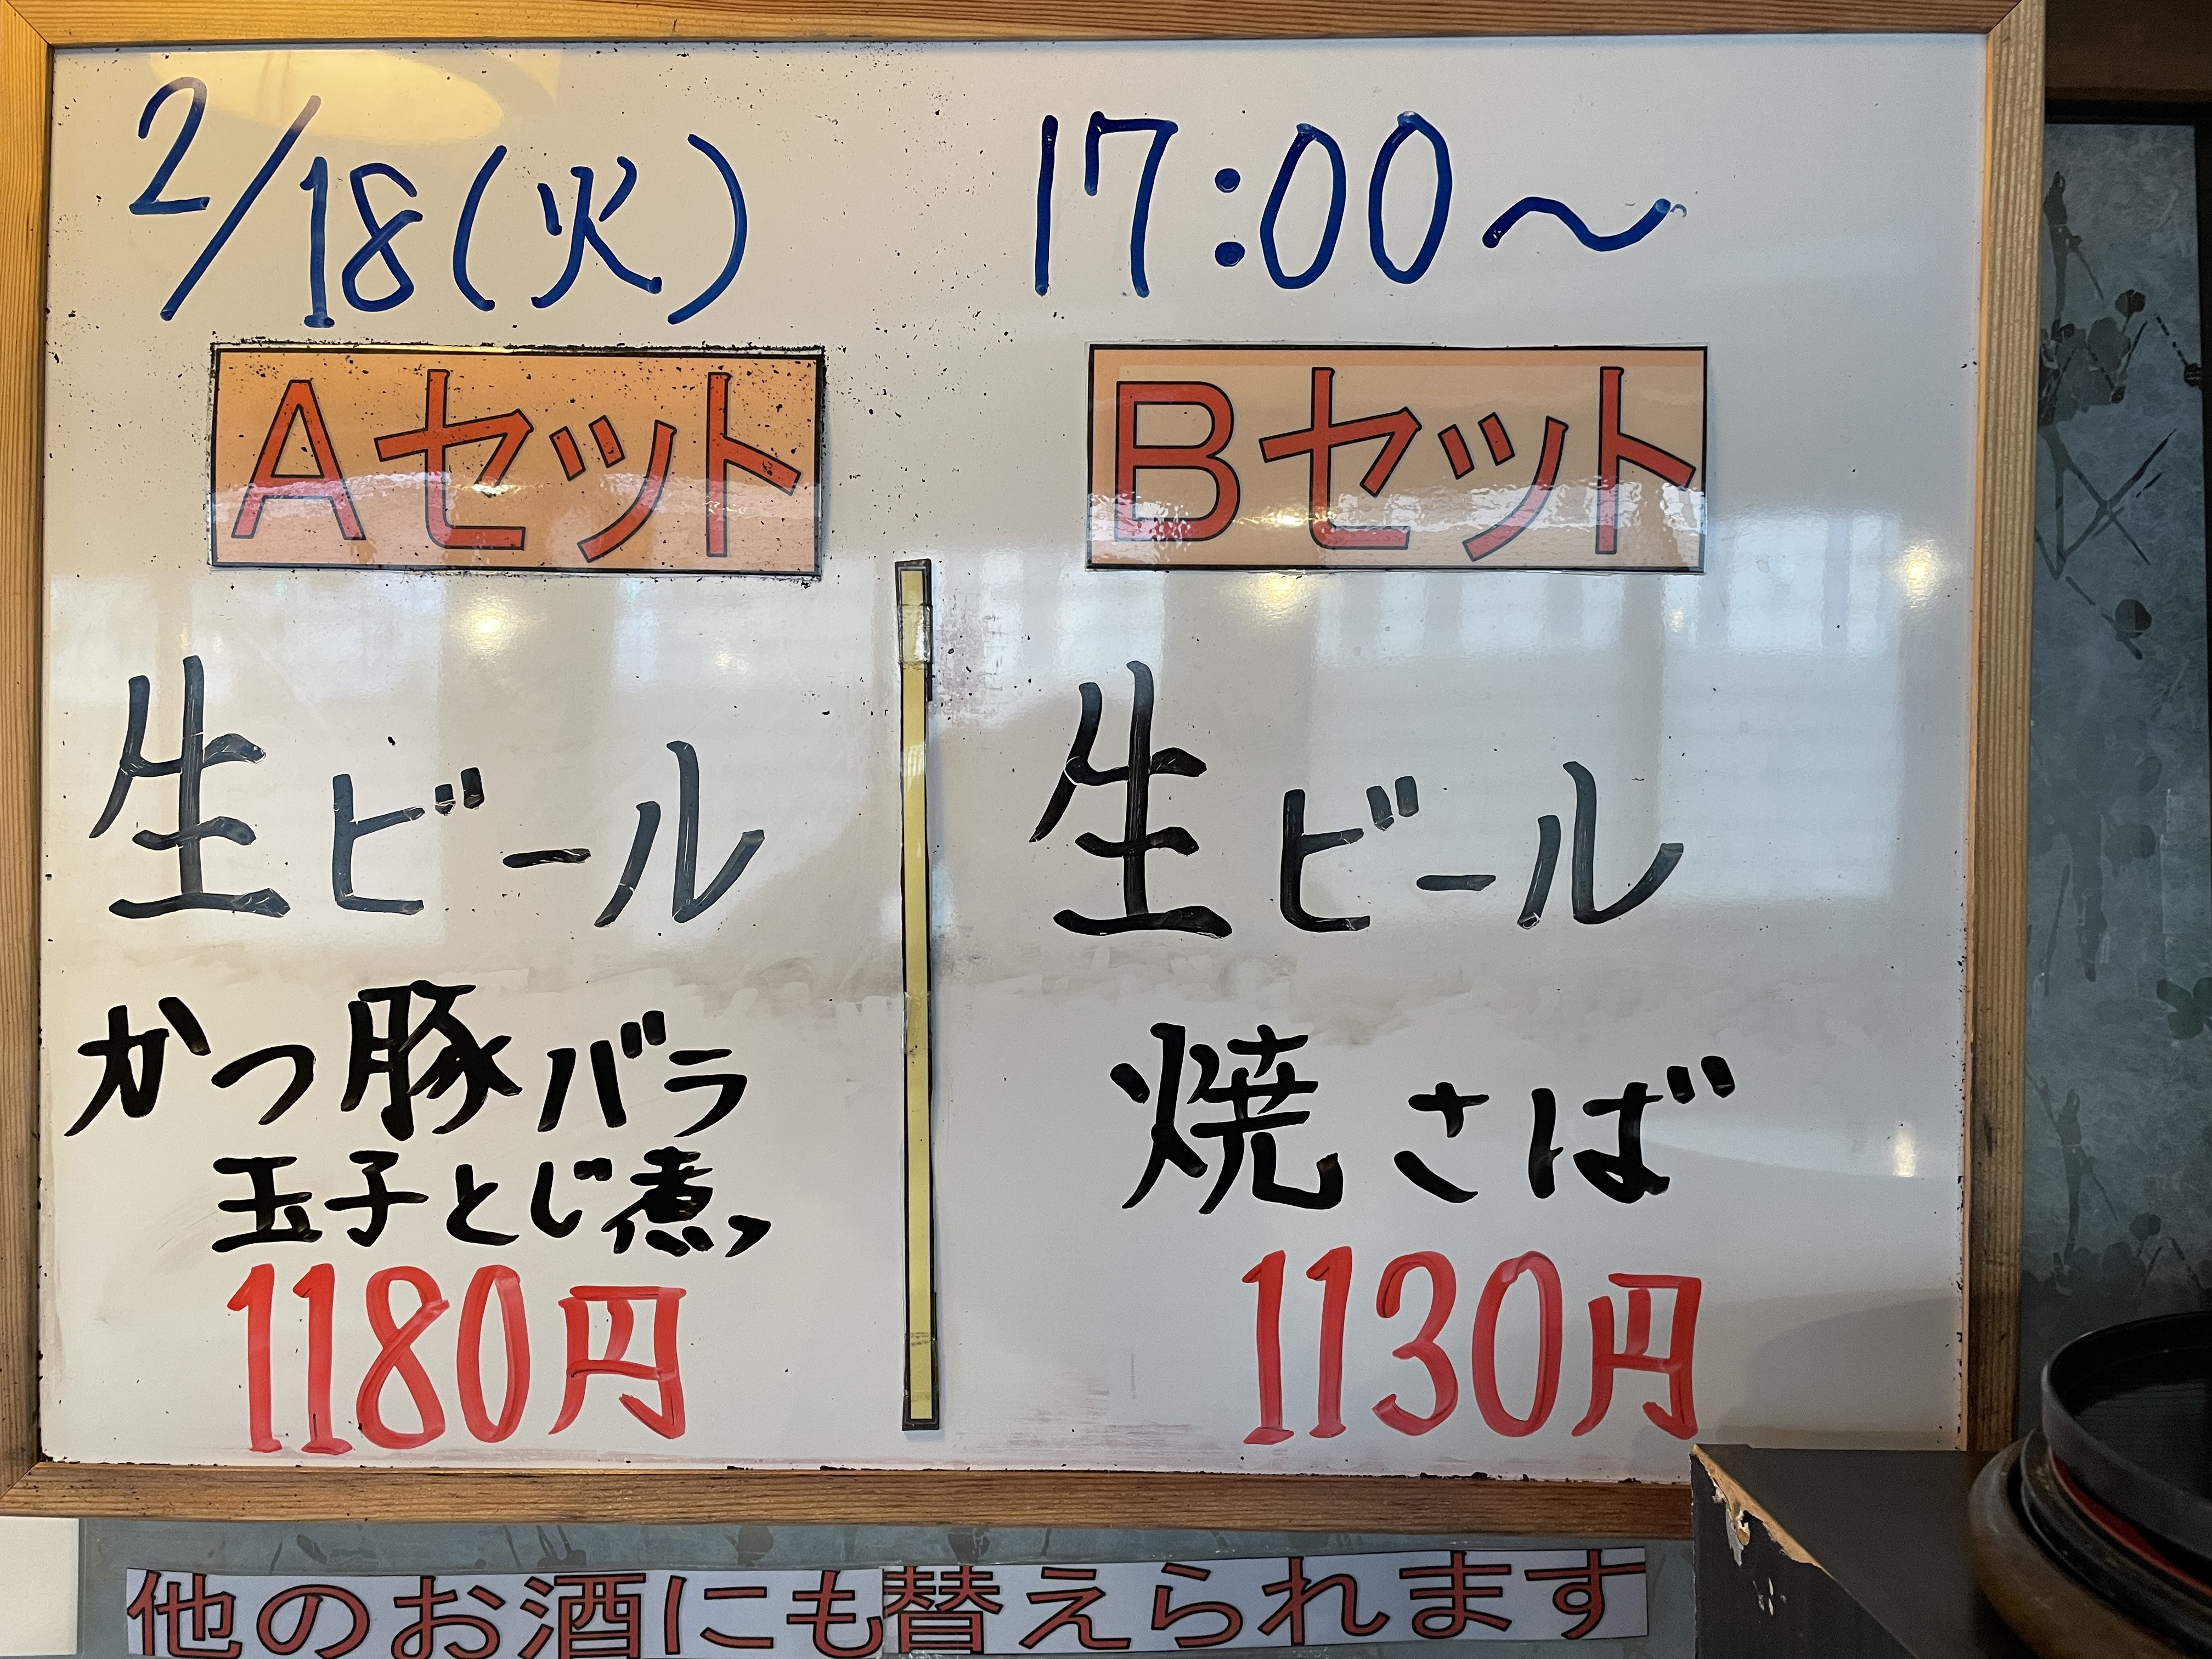 2/18(火) 17:00〜
Aセット
生ビール
かつ豚バラ
玉子とじ煮
1180円
Bセット
生ビール
焼さば
1130円
他のお酒にも替えられます